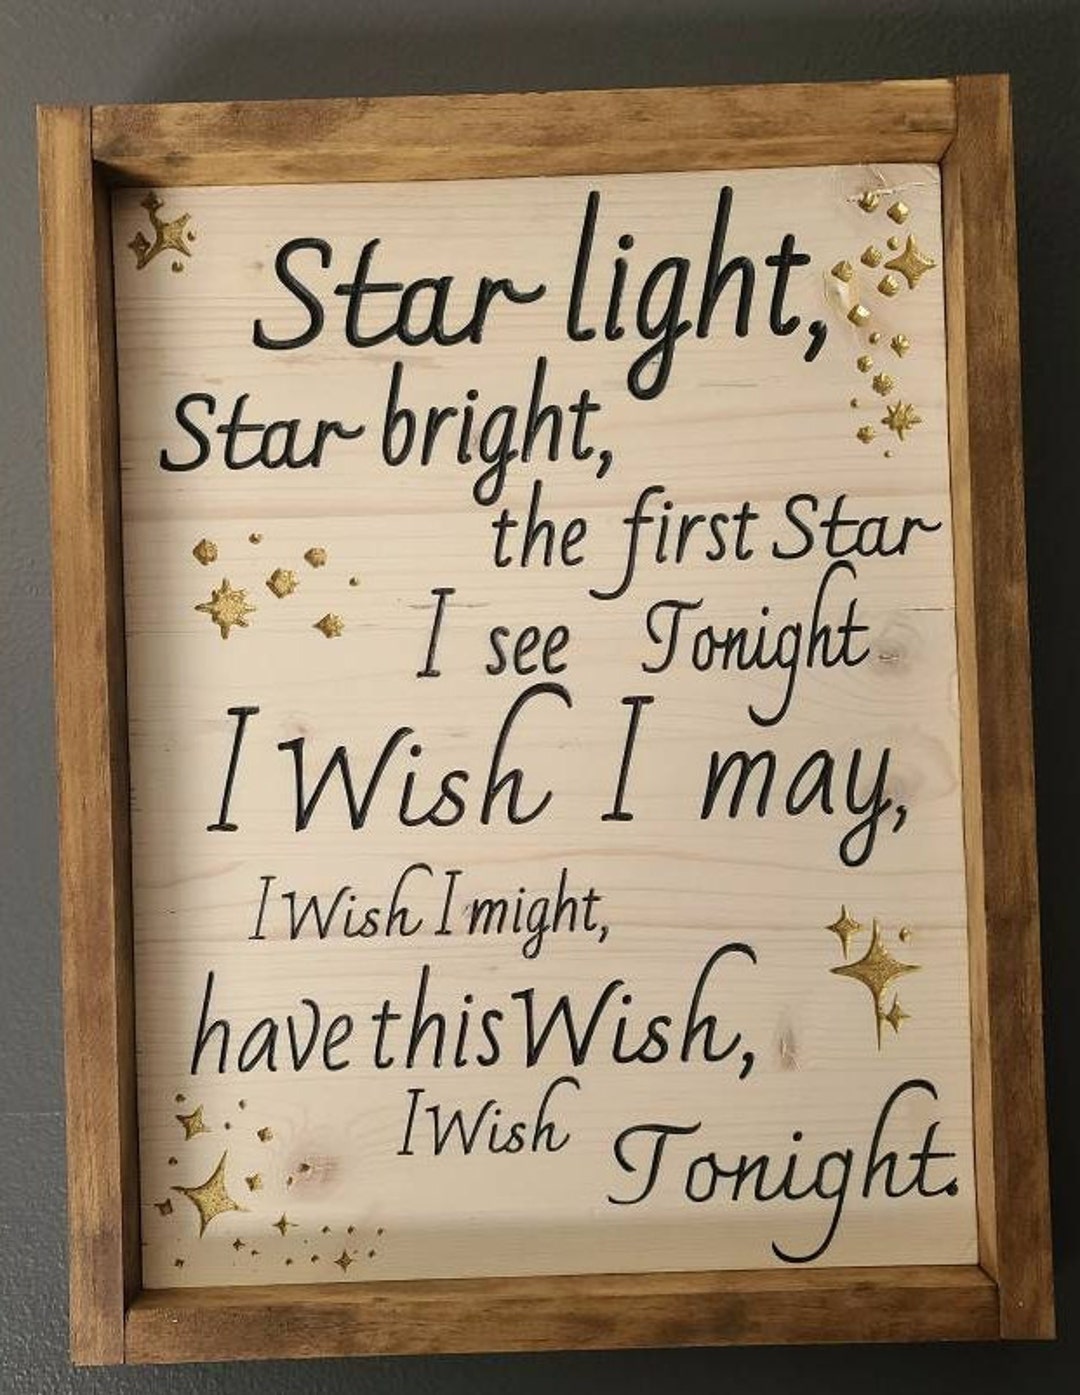 Star light,
Star bright,
the first Star
I see Tonight
I Wish I may,
I Wish I might,
have this Wish,
I Wish
Tonight.